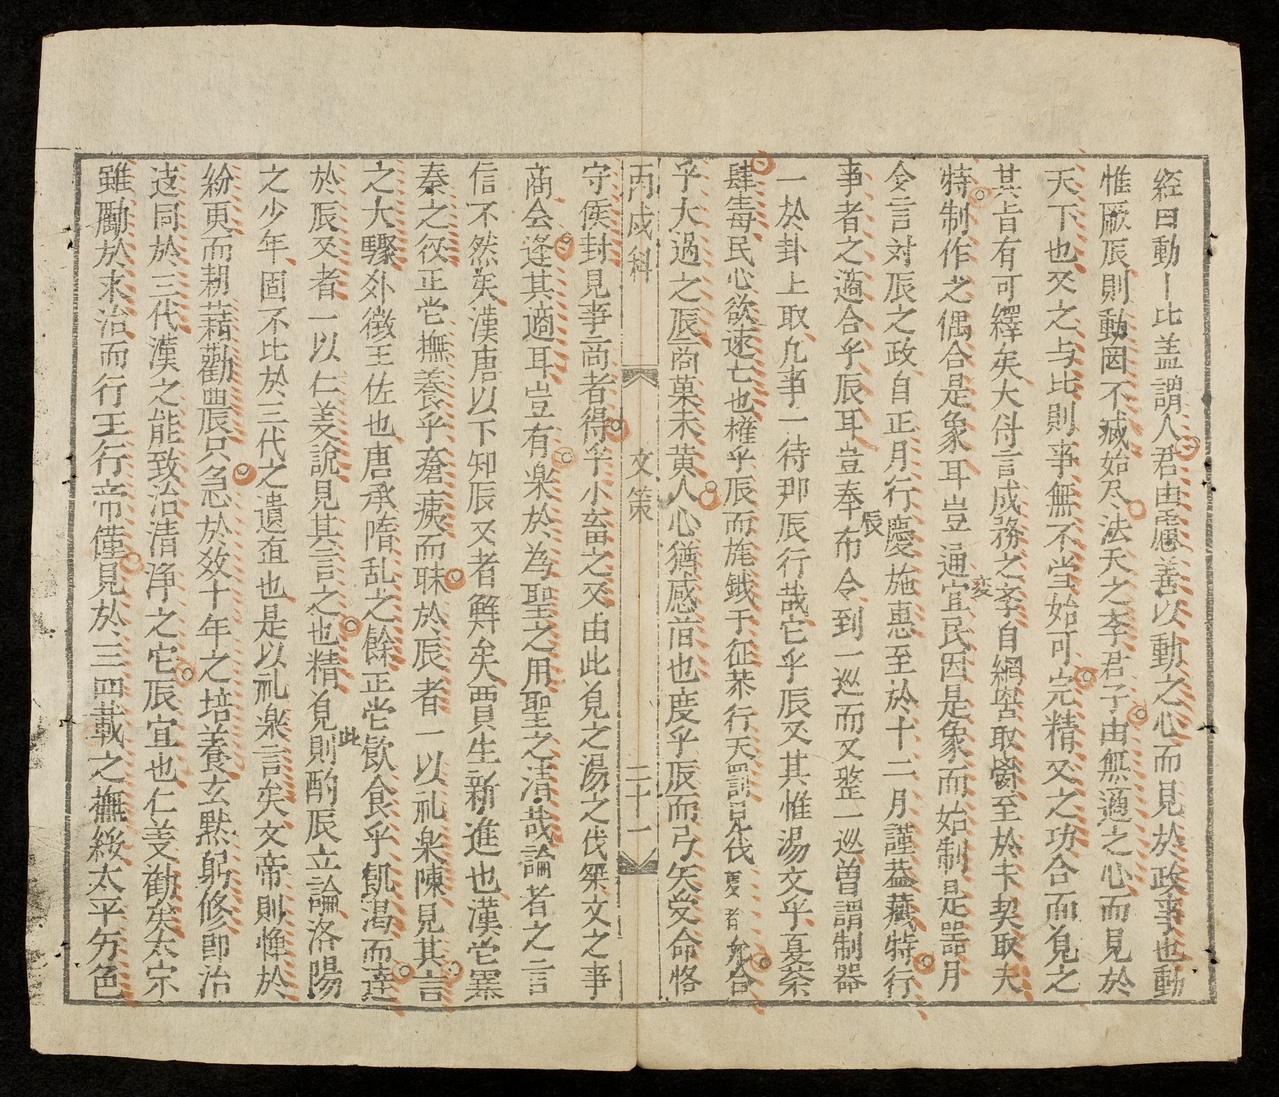 経曰動丨比盖謂人君由慮善以動之心而見於政事也動
惟厥辰則動罔不臧始尽法天之李君子由無適之心而見於
天下也义之与比則事無不當始可完精义之功合而覌之
其旨有可繹矣大付言成務之李自網罟取啇至於未契取夬
特制作之偶合是象耳豈通宜民因是象而始制是噐月
変
令言対辰之政自正月行慶施惠至於十二月謹盖藏特行
辰
事者之適合乎辰耳豈奉布令到一巡而又整一巡曽謂制器
一於卦上取凢事一待那辰行哉它乎辰义其惟湯文乎夏桀
肆毒民心欲速亡也権乎辰而旄鉞于征恭行天罰見伐夏者允合
乎大過之辰商菓未黄人心猶感旧也度乎辰而弓矢受命恪
丙戌科 文策 二十一
守侯封見事商者得乎小畜之义由此覌之湯之伐桀文之事
商会逢其適耳豈有楽於為聖之用聖之清哉論者之言
信不然矣漢唐以下知辰义者鮮矣賈生新進也漢當罴
秦之役正當撫養乎瘡痍而昧於辰者一以礼楽陳見其言
之大驟外徵王佐也唐承隋乱之餘正當飲食乎飢渴而達
於辰义者一以仁義說見其言之也精覌則酌辰立論洛陽
此
之少年固不比於三代之遺直也是以礼楽言矣文帝則憚於
紛更而耕藉勸農只急於效十年之培養玄黙躬修即治
迠同於三代漢之能致治清浄之它辰宜也仁義勧矣太宗
雖勵於求治而行王行帝僅見於三四載之撫綏太平労色